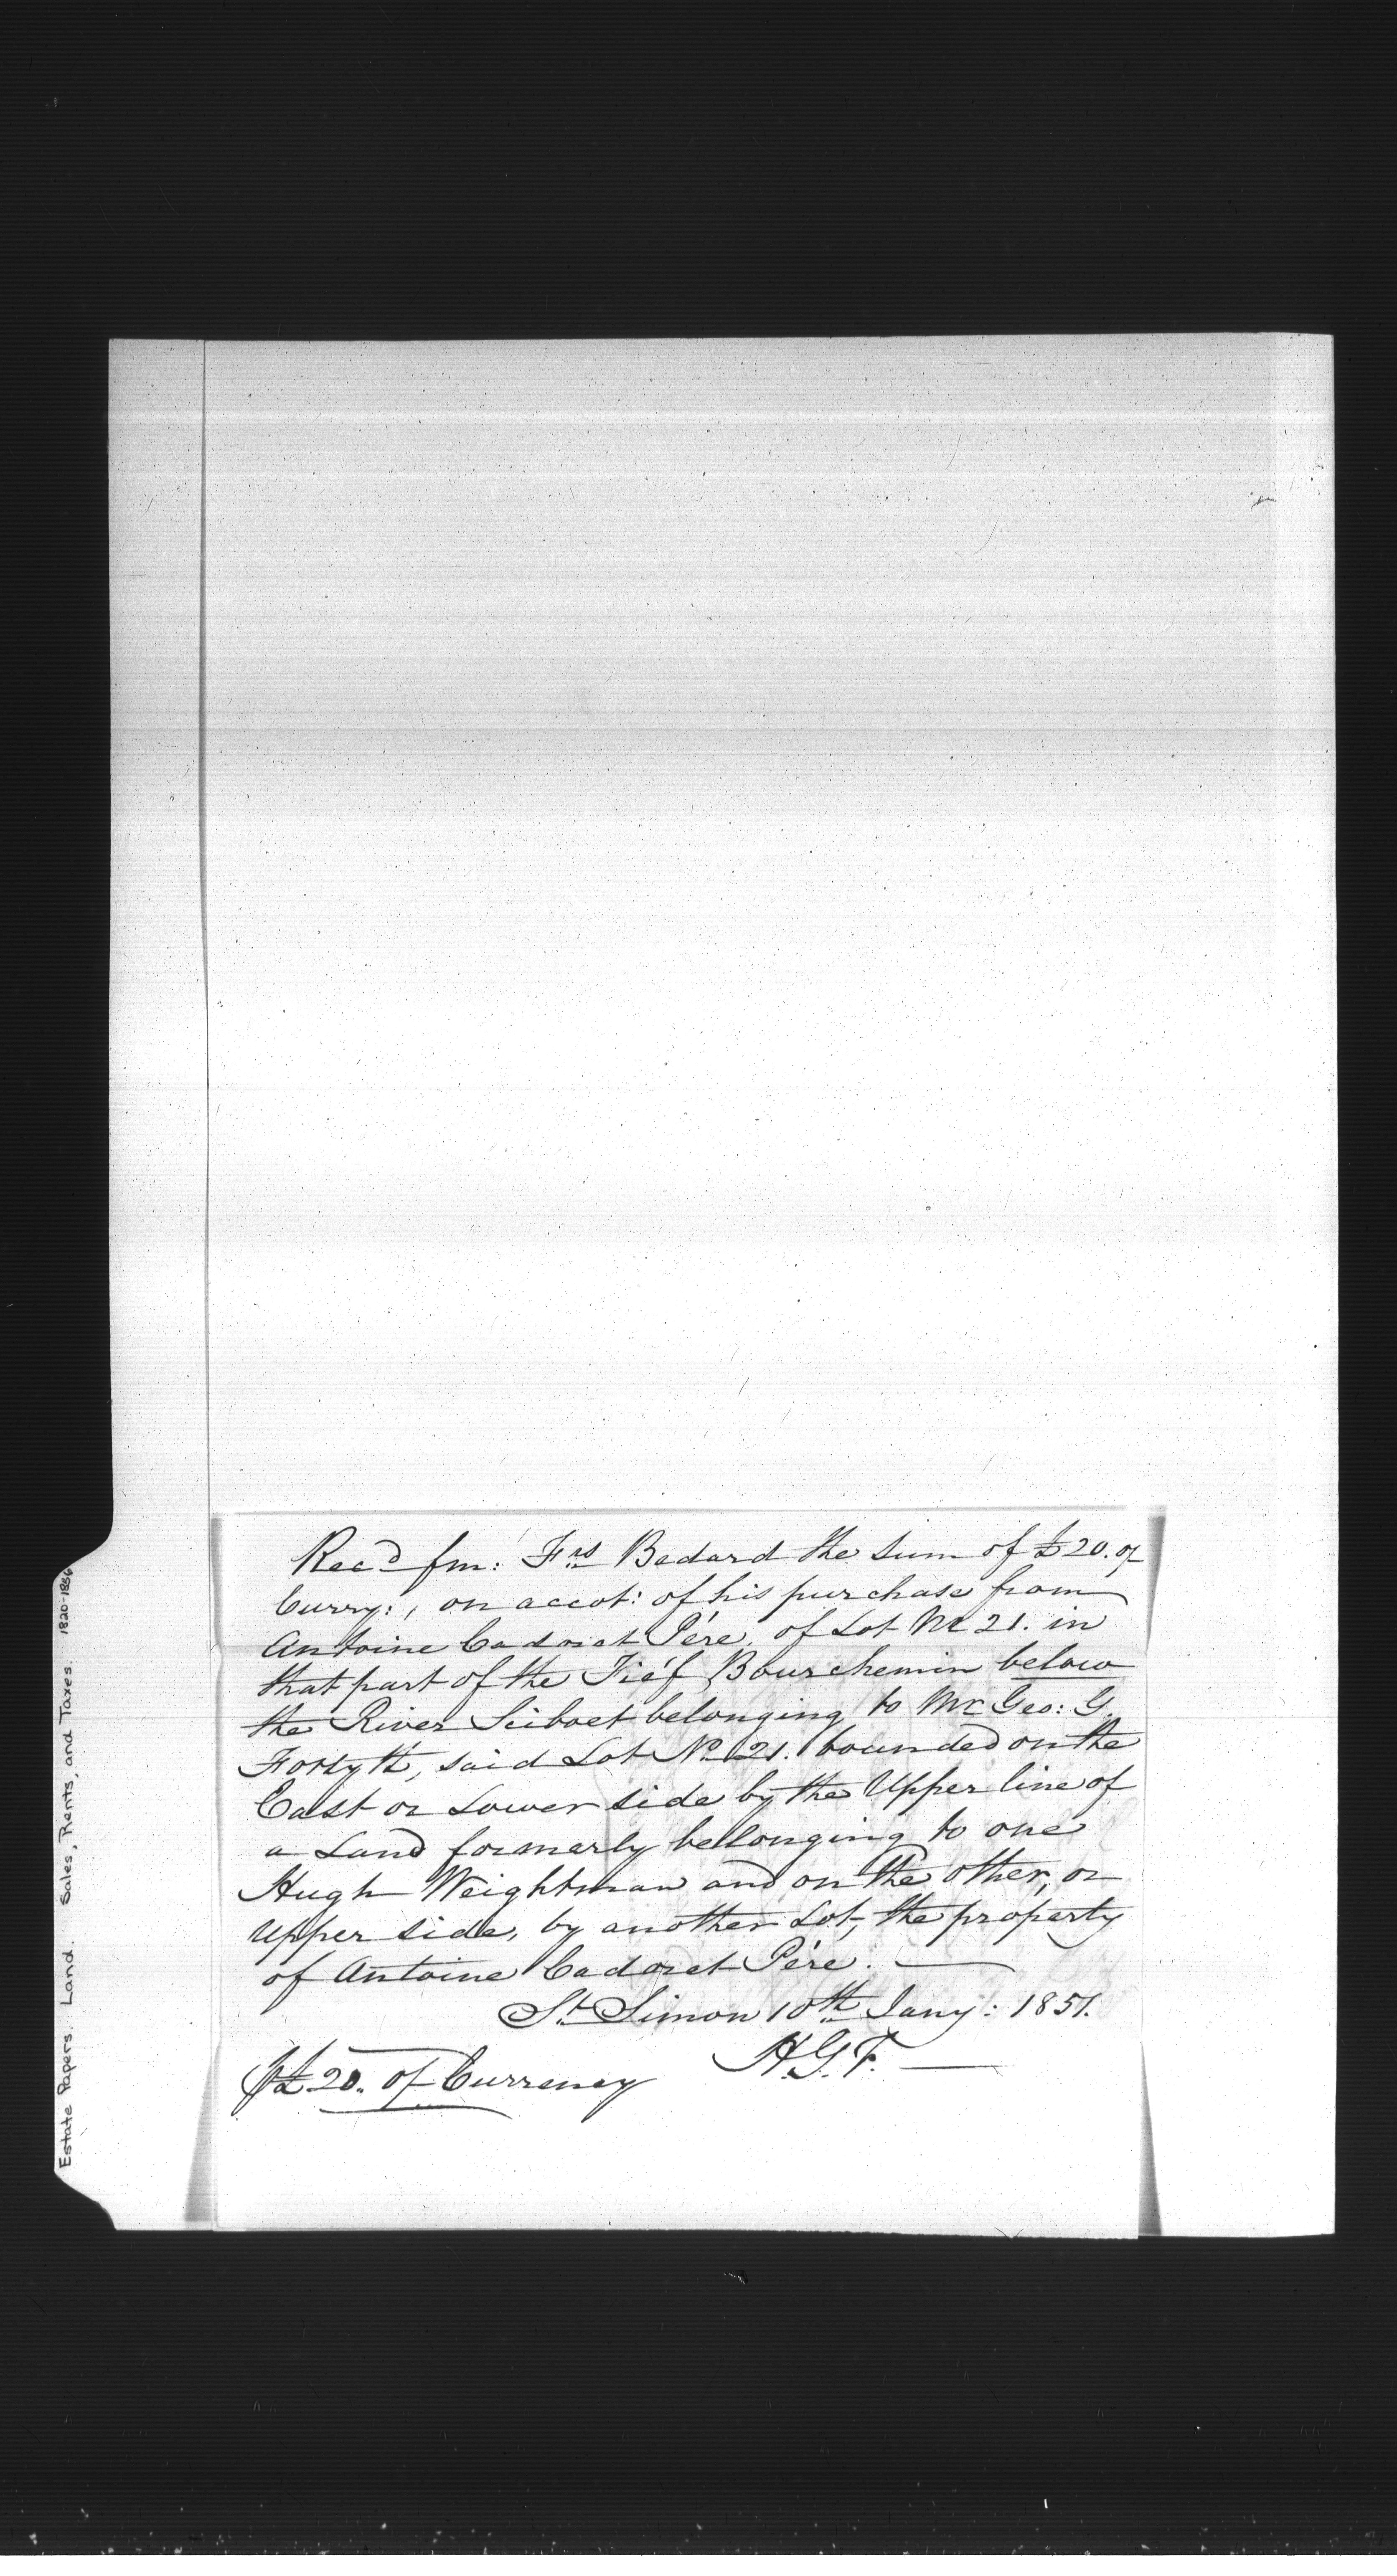 Recd fm: Frs Bedard the sum of £20. of
Curry:, on accot: of his purchase from
Antoine Cadoret Pére, of Lot No 21. in
that part of the Fiéf Bourchemin below
the River Sciboet belonging to Mr Geo: G.
Forsyth, said Lot No 21. bounded on the
East or Lower side by the Upper line of
a Land formerly bellonging to one
Hugh Weightman and on the other, or
Upper side, by another Lot, the property
of Antoine Cadoret Pére.
St Simon 10th Jany: 1851.
H.G.F.
£20. of Currency
Estate Papers. Land. Sales, Rents, and Taxes. 1820-1856